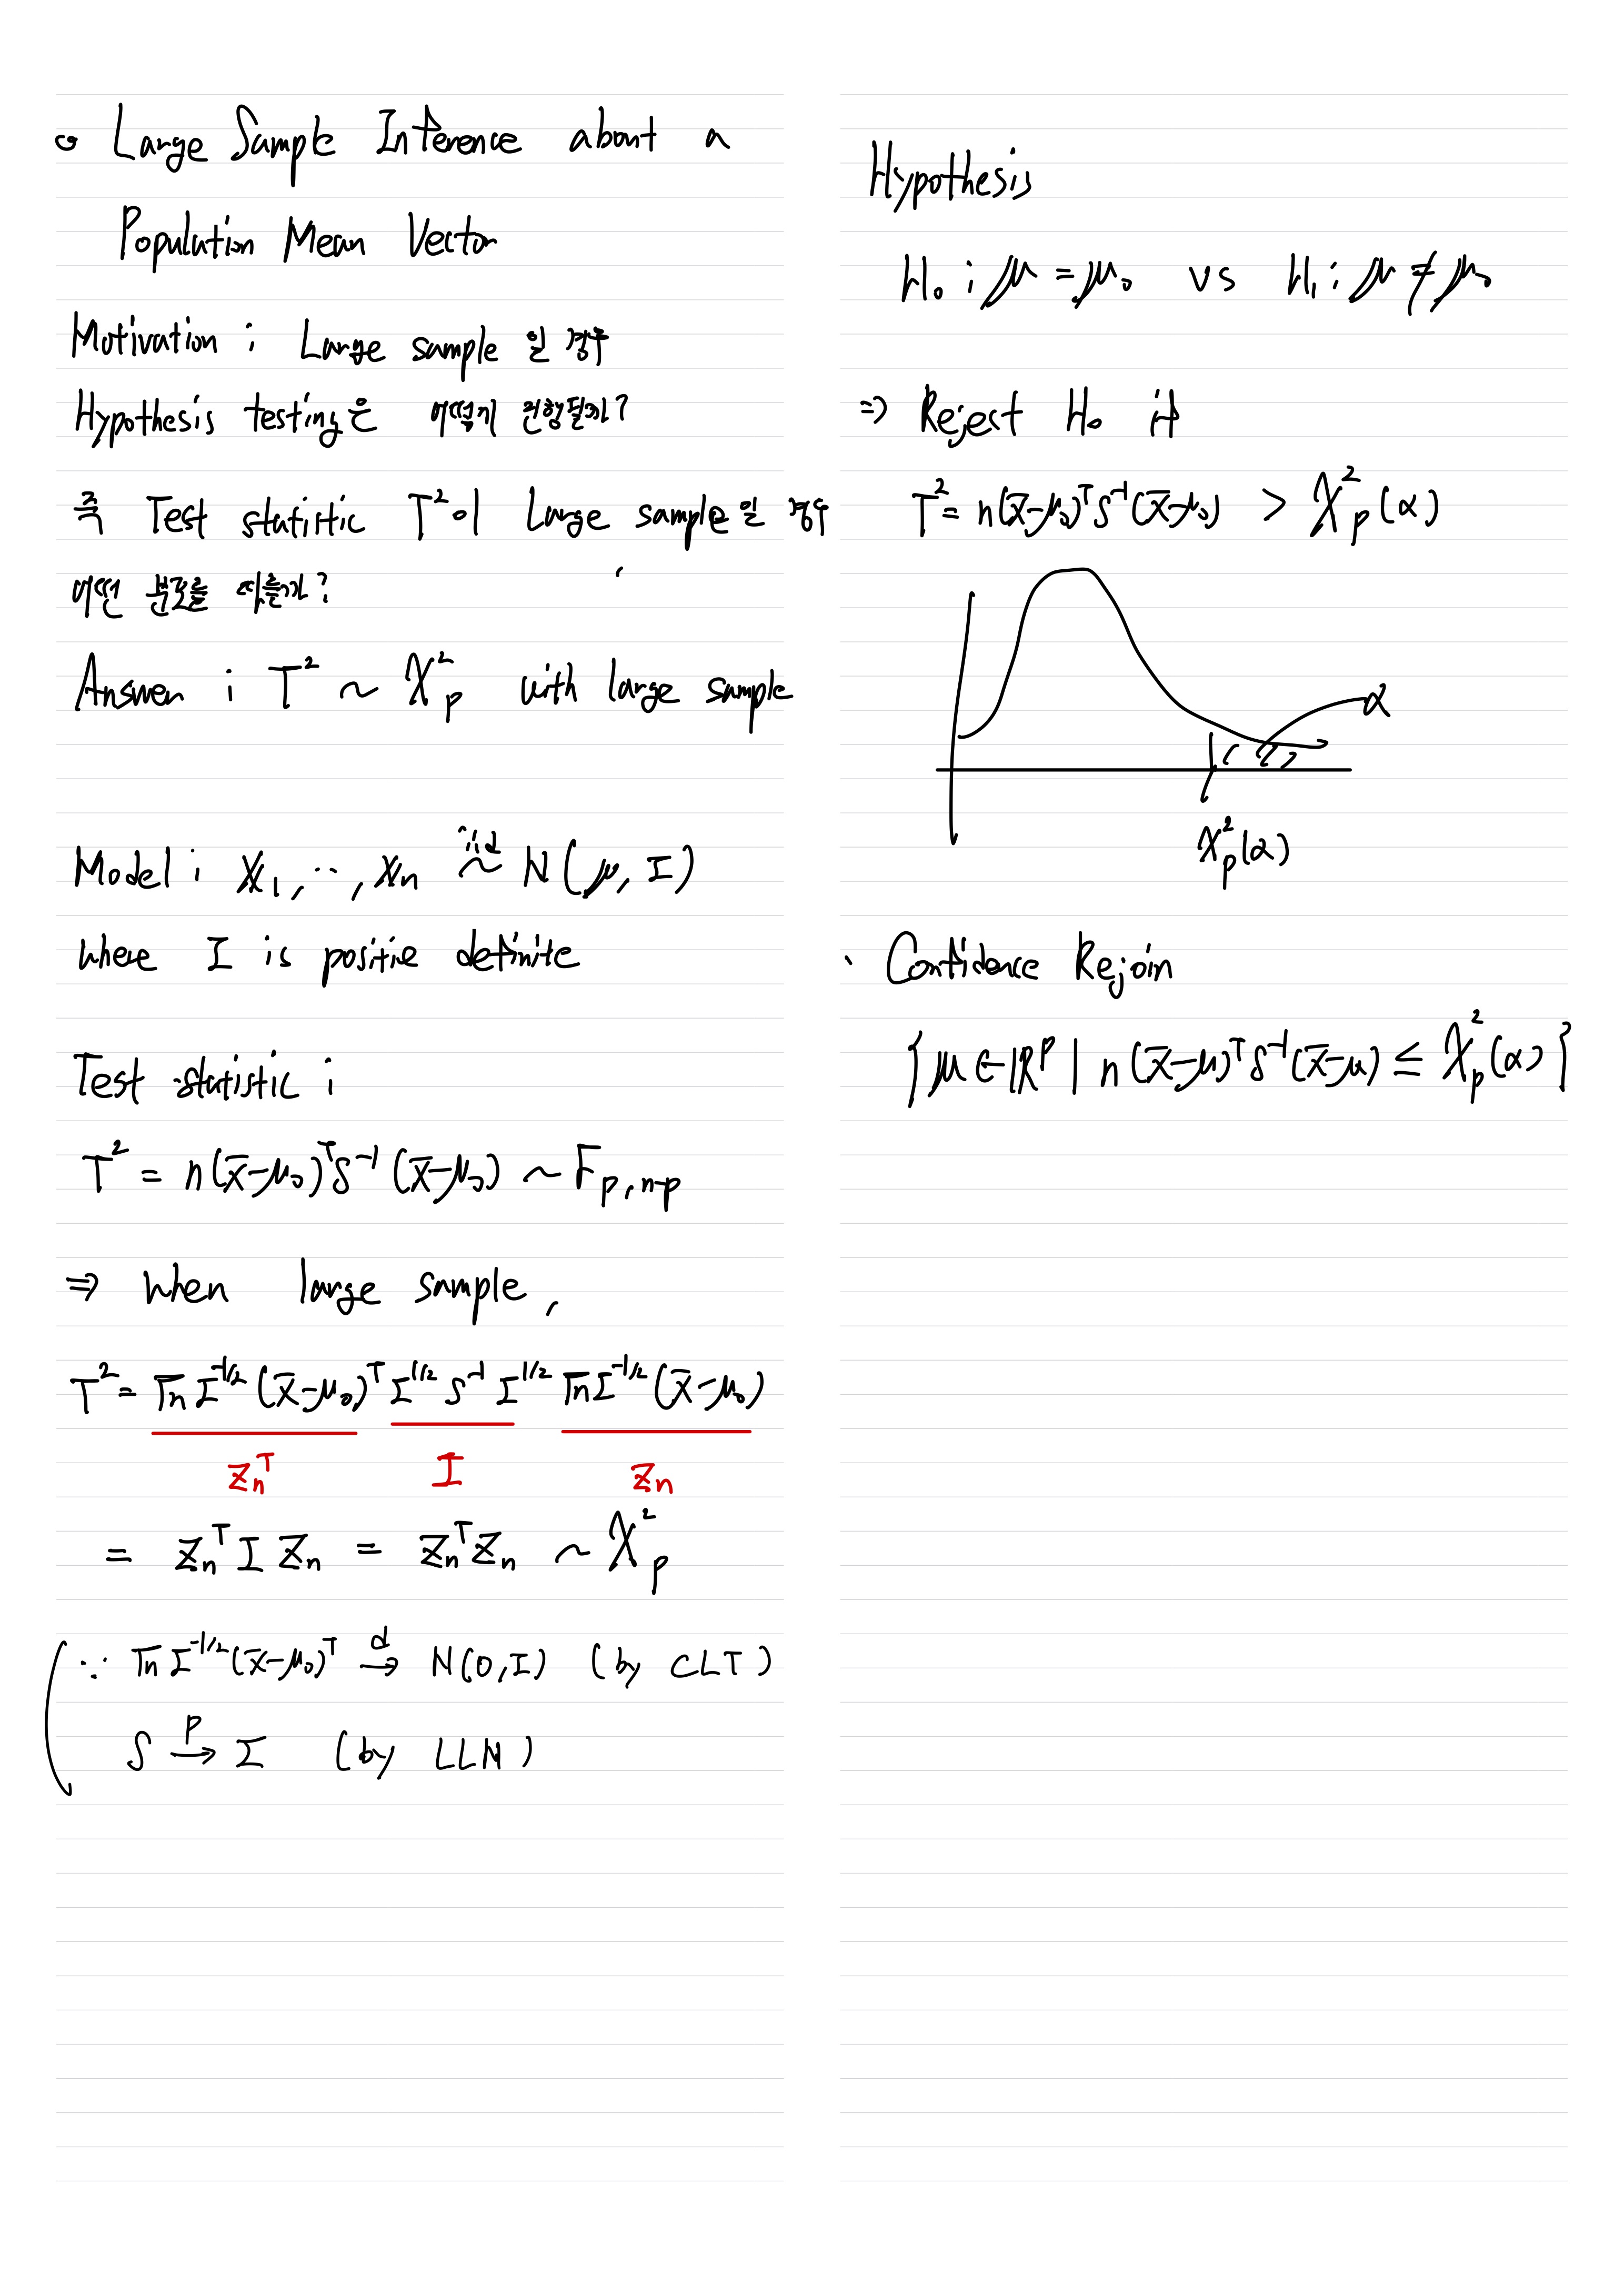 ○ Large Sample Inference about a
Population Mean Vector
Motivation : Large sample 일 경우
Hypothesis testing은 어떻게 진행될까?
즉 Test statistic T²이 Large sample일 경우
어떤 분포를 따를까?
Answer : T² ~ χ²_p with large sample
Model : X₁, ..., Xₙ iid ~ N(μ, Σ)
where Σ is positie definite
Test statistic :
T² = n(x̄-μ₀)ᵀS⁻¹(x̄-μ₀) ~ F_{p, n-p}
⇒ when large sample,
T² = √n Σ^{-1/2} (x̄-μ₀)ᵀ Σ^{1/2} S⁻¹ Σ^{1/2} √n Σ^{-1/2} (x̄-μ₀)
Zₙᵀ I Zₙ
= Zₙᵀ I Zₙ = Zₙᵀ Zₙ ~ χ²_p
∵ √n Σ^{-1/2} (x̄-μ₀)ᵀ →d N(0, I) (by CLT)
S →p Σ (by LLN)
Hypothesis
H₀ : μ = μ₀ vs H₁ : μ ≠ μ₀
⇒ Reject H₀ if
T² = n(x̄-μ₀)ᵀS⁻¹(x̄-μ₀) > χ²_p(α)
α
χ²_p(α)
· Confidence Rejoin
{ μ ∈ ℝᵖ | n(x̄-μ)ᵀS⁻¹(x̄-μ) ≤ χ²_p(α) }